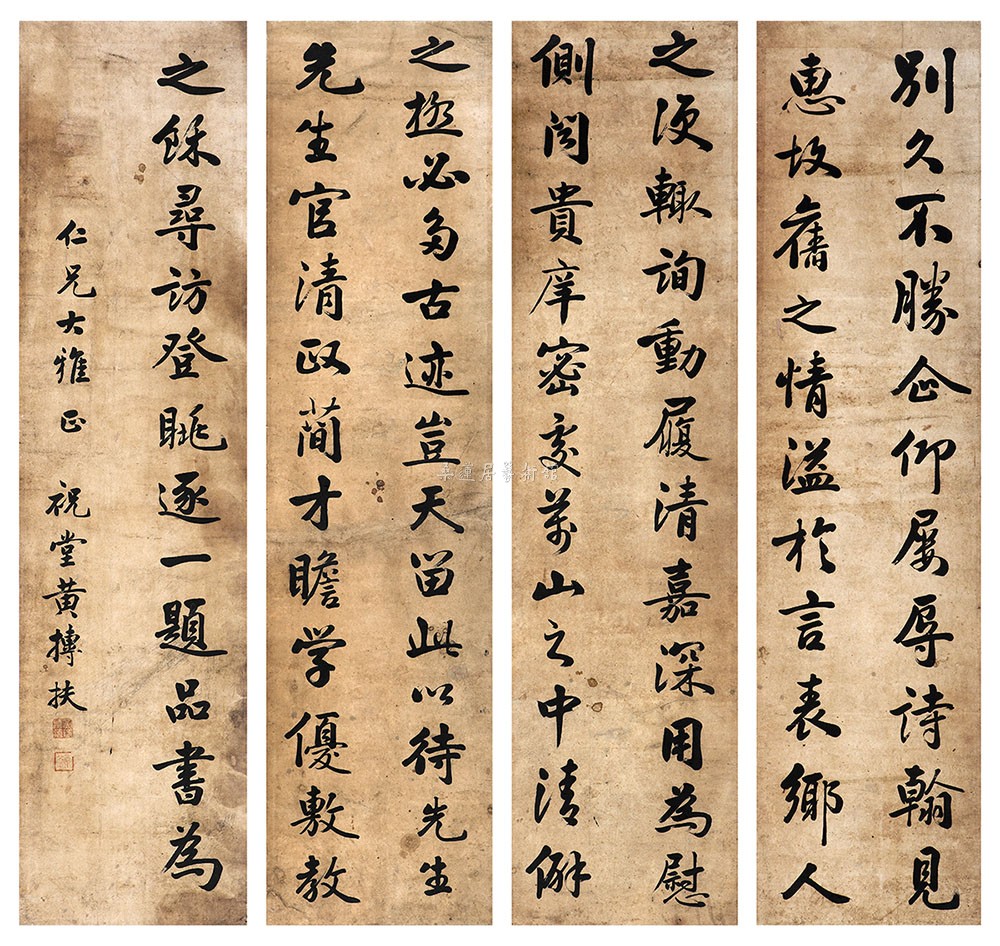 別久不勝企仰屢辱诗翰見
惠故舊之情溢於言表鄉人
之便輙詢動履清嘉深用為慰
側闻貴庠密交萬山之中清僻
之極必多古迹豈天留此以待先生
先生官清政蕳才瞻学優敷教
之稣尋访登眺逐一題品書為
仁兄大雅正 祝堂黄摶扶